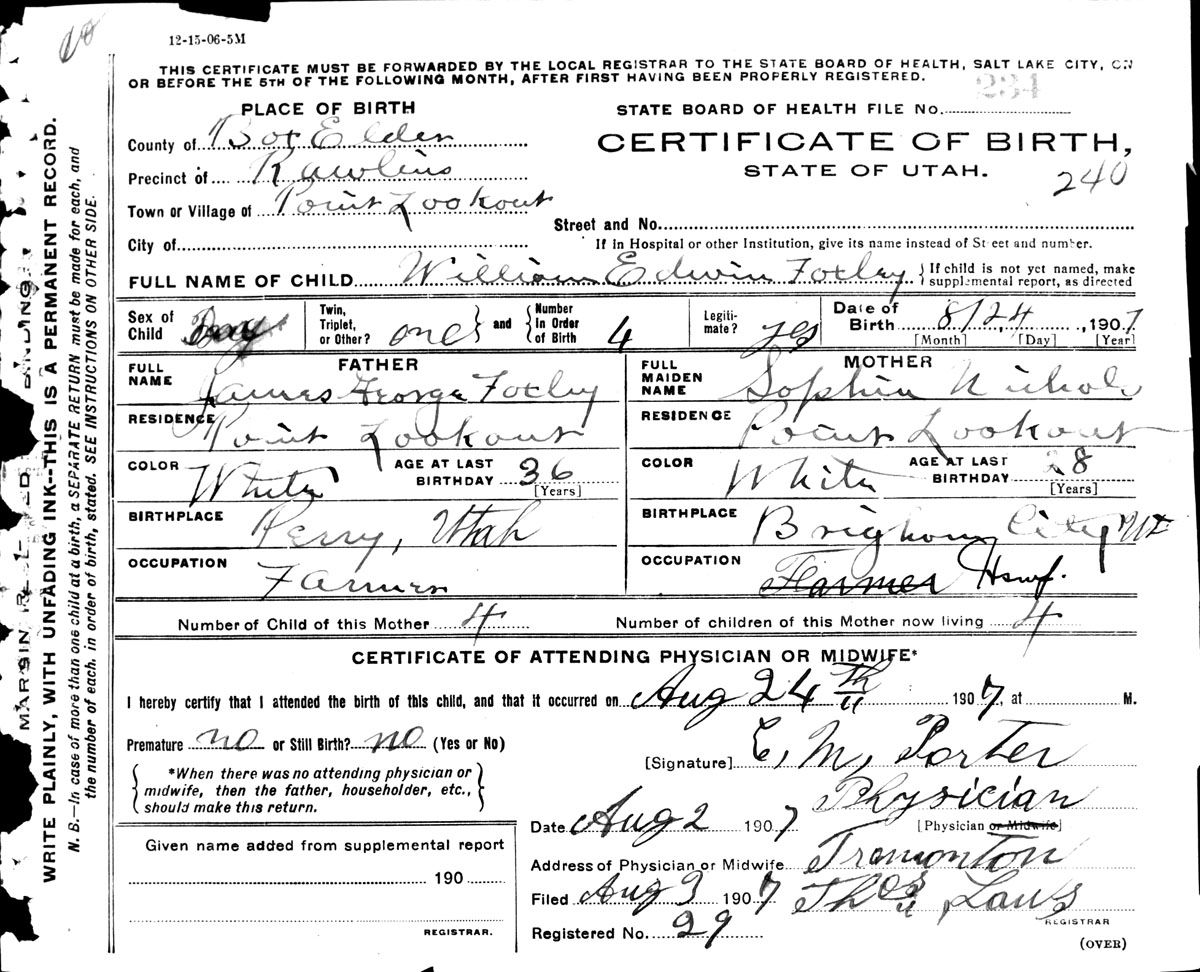 12-15-06-5M
THIS CERTIFICATE MUST BE FORWARDED BY THE LOCAL REGISTRAR TO THE STATE BOARD OF HEALTH, SALT LAKE CITY, ON
OR BEFORE THE 5TH OF THE FOLLOWING MONTH, AFTER FIRST HAVING BEEN PROPERLY REGISTERED.
234
PLACE OF BIRTH
STATE BOARD OF HEALTH FILE No.
County of Box Elder
CERTIFICATE OF BIRTH,
STATE OF UTAH.
240
Precinct of Rawlins
Town or Village of Point Lookout
Street and No.
City of
If in Hospital or other Institution, give its name instead of Street and number.
FULL NAME OF CHILD William Edwin Foxley { If child is not yet named, make supplemental report, as directed
Sex of Child Boy
Twin, Triplet, or Other? one } and { Number In Order of Birth 4
Legitimate? yes
Date of Birth 8/24, 1907
[Month] [Day] [Year]
FATHER
FULL NAME James George Foxley
RESIDENCE Point Lookout
COLOR White AGE AT LAST BIRTHDAY 36 [Years]
BIRTHPLACE Perry, Utah
OCCUPATION Farmer
MOTHER
FULL MAIDEN NAME Sophia Nichols
RESIDENCE Point Lookout
COLOR White AGE AT LAST BIRTHDAY 28 [Years]
BIRTHPLACE Brigham City Ut
OCCUPATION Farmer Hswf.
Number of Child of this Mother 4 Number of children of this Mother now living 4
CERTIFICATE OF ATTENDING PHYSICIAN OR MIDWIFE*
I hereby certify that I attended the birth of this child, and that it occurred on Aug 24th 1907, at M.
Premature no or Still Birth? no (Yes or No)
{ *When there was no attending physician or midwife, then the father, householder, etc., should make this return. }
[Signature] E. M. Porter
Physician
[Physician or Midwife]
Date Aug 2 1907
Address of Physician or Midwife Tremonton
Filed Aug 3 1907 Thos Laws
REGISTRAR
Registered No. 29
(OVER)
Given name added from supplemental report
190
REGISTRAR.
MARGIN RESERVED BINDING
WRITE PLAINLY, WITH UNFADING INK--THIS IS A PERMANENT RECORD.
N. B.—In case of more than one child at a birth, a SEPARATE RETURN must be made for each, and
the number of each, in order of birth, stated. SEE INSTRUCTIONS ON OTHER SIDE.